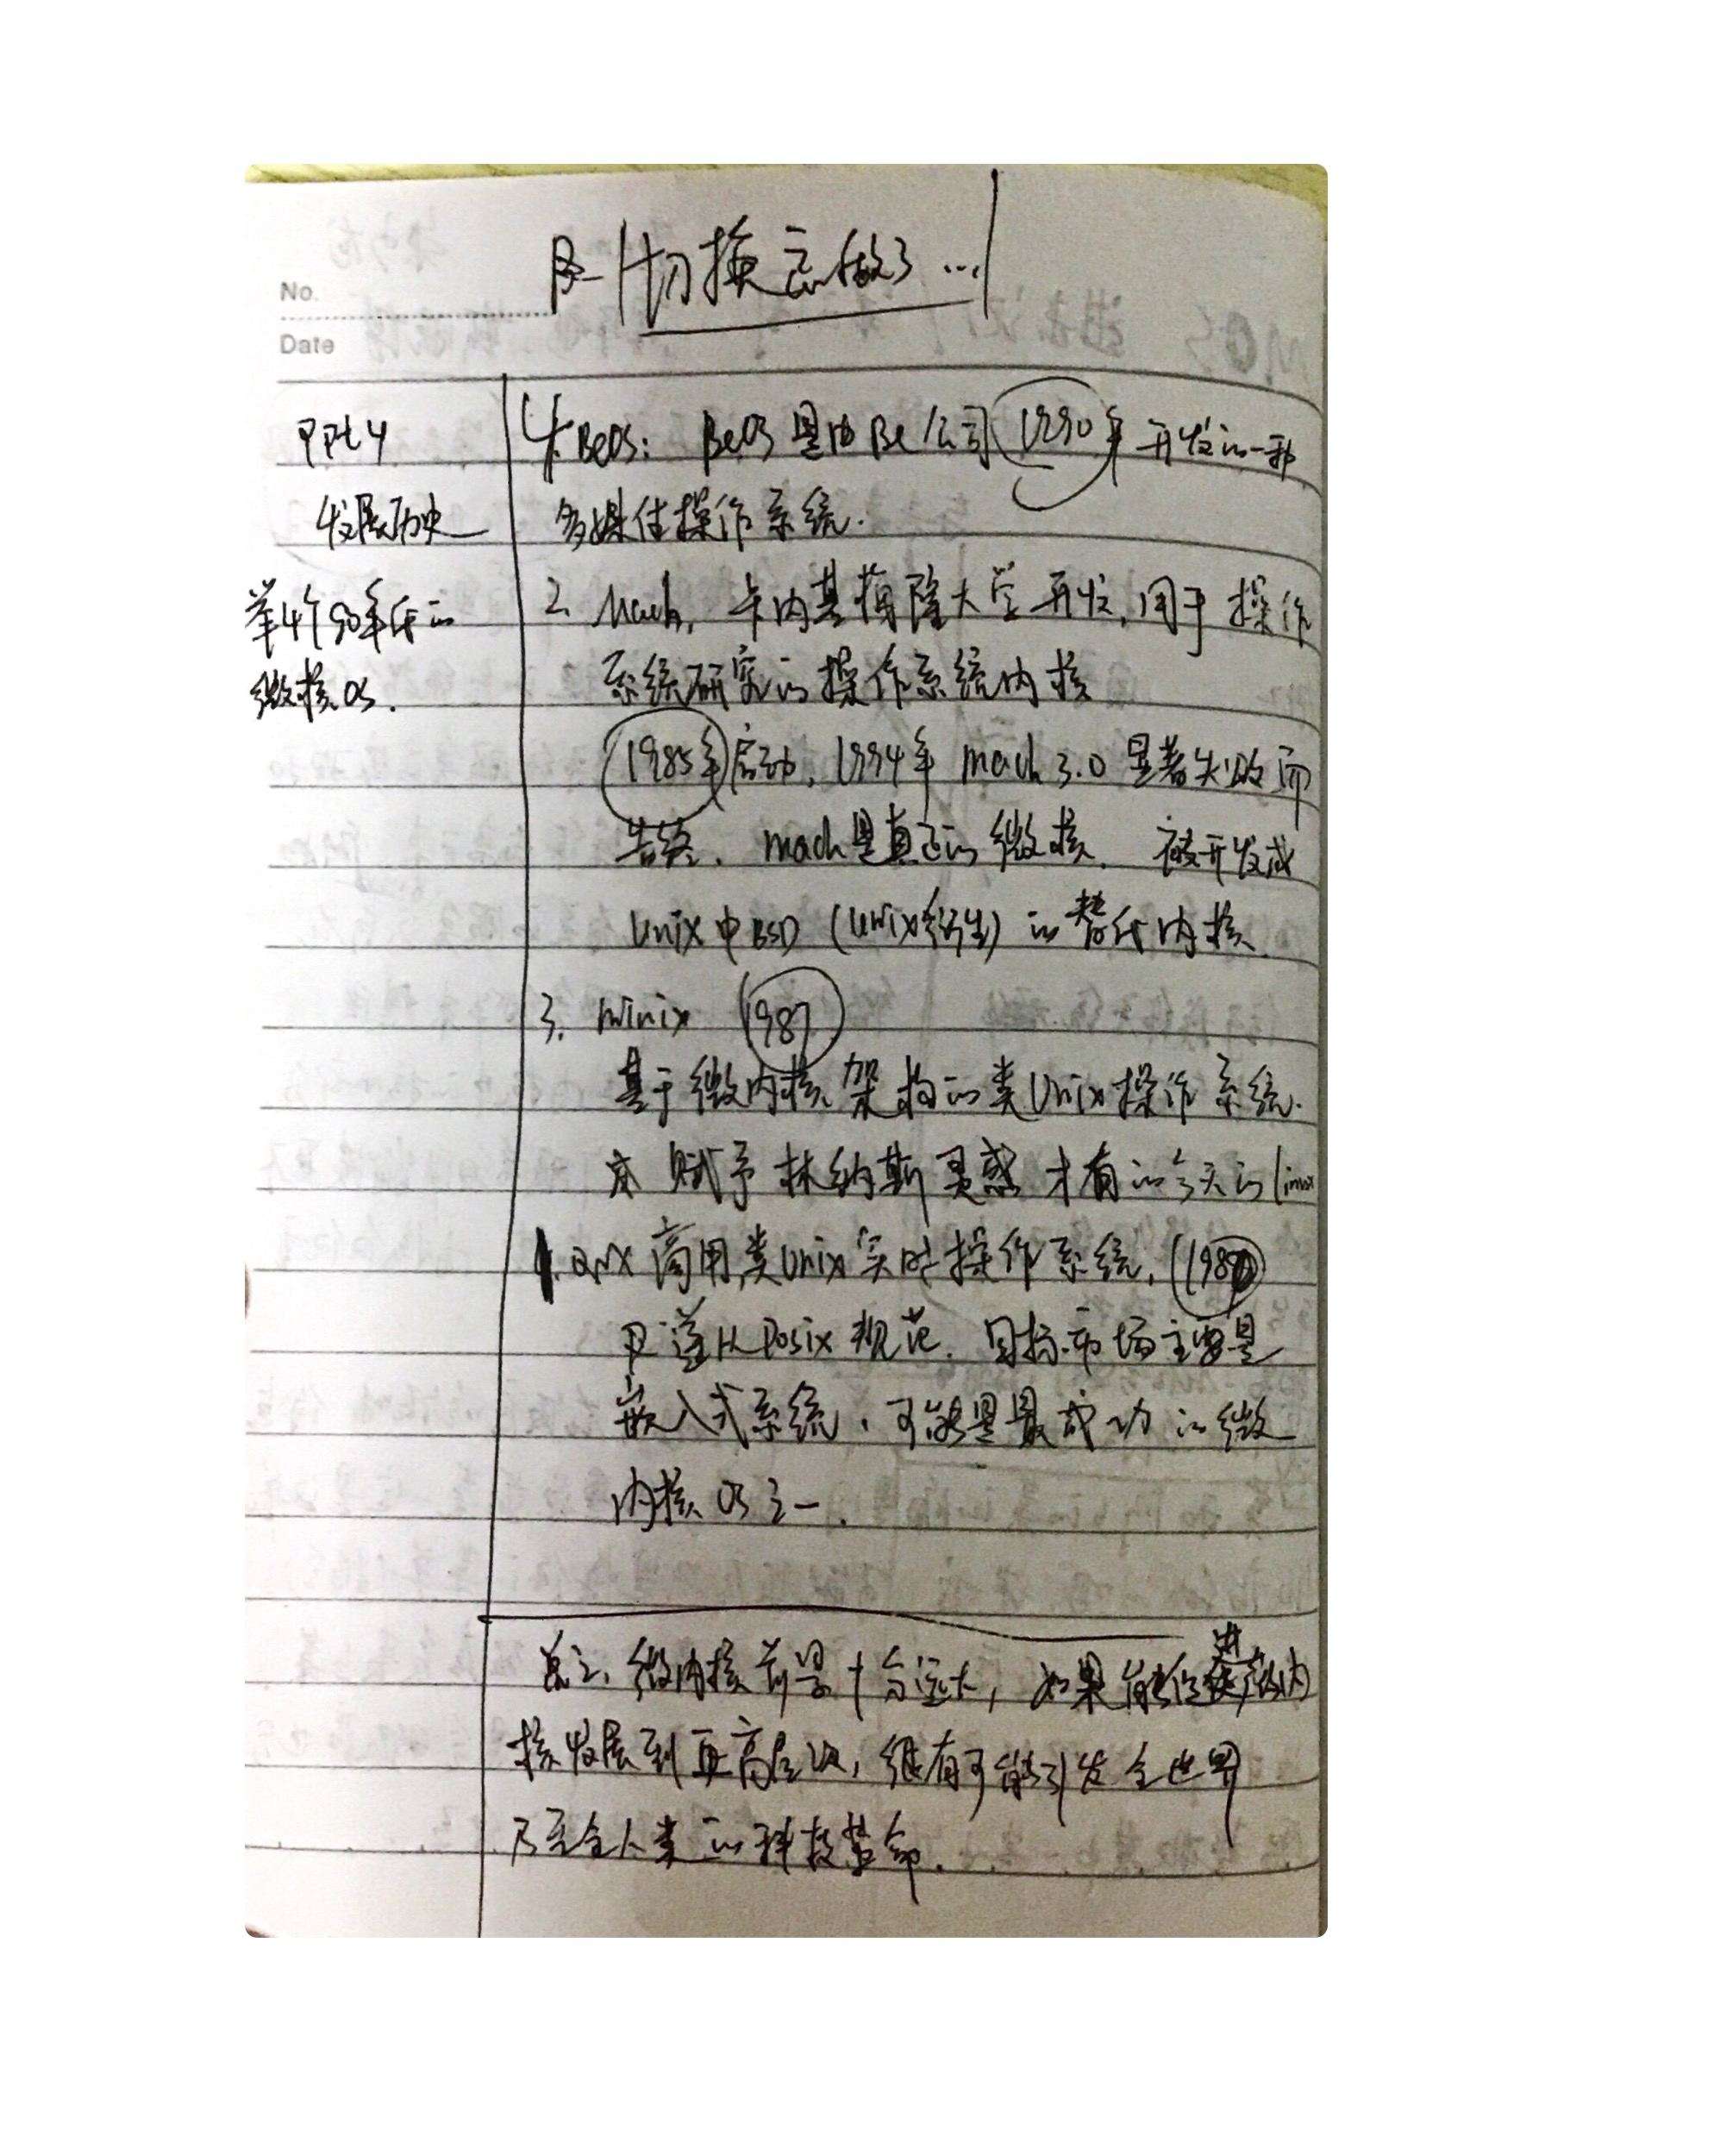 切换忘做了...
No.
Date
PPt 4
发展历史
举4个90年代的
微核OS.
4. BeOS: BeOS是由Be公司1990年开发的一种
多媒体操作系统.
2. Mach, 卡内基梅隆大学开发,用于操作
系统研究的操作系统内核
1985年启动, 1994年 mach 3.0 显著失败而
告终. mach是真正的微核. 被开发成
Unix中BSD (Unix衍生) 的替代内核.
3. Minix 1987
基于微内核架构的类Unix操作系统.
赋予林纳斯灵感才有的今天的linux
1. QNX 商用类Unix实时操作系统, (1980
遵从Posix规范. 目标市场主要是
嵌入式系统, 可能是最成功的微
内核OS之一.
总之, 微内核前景十分远大, 如果能内
核发展到更高层次, 很有可能引发全世界
乃至全人类的科技革命.